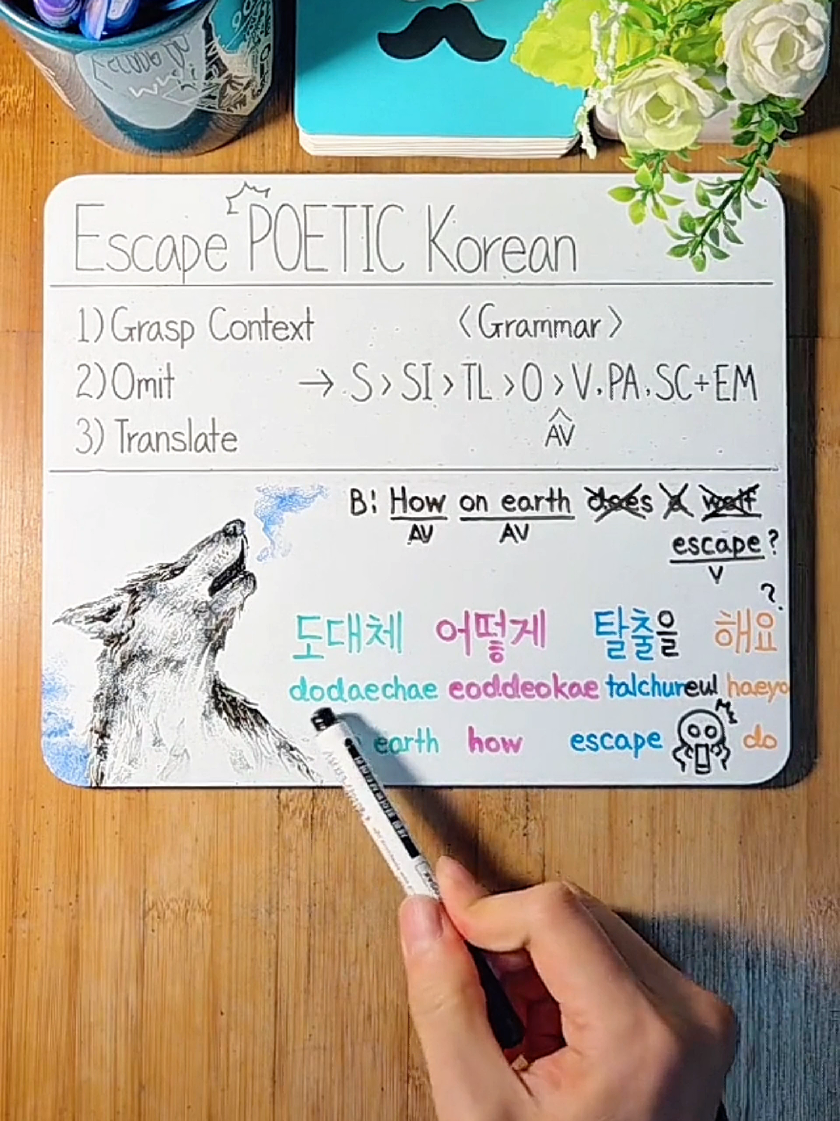 Escape POETIC Korean
1) Grasp Context
<Grammar>
2) Omit
→ S > SI > TL > O > V, PA, SC + EM
AV
3) Translate
B: How on earth does a wolf
AV AV
escape?
V
도대체 어떻게 탈출을 해요?
dodaechae eoddeokae talchureul haeyo
earth how escape do